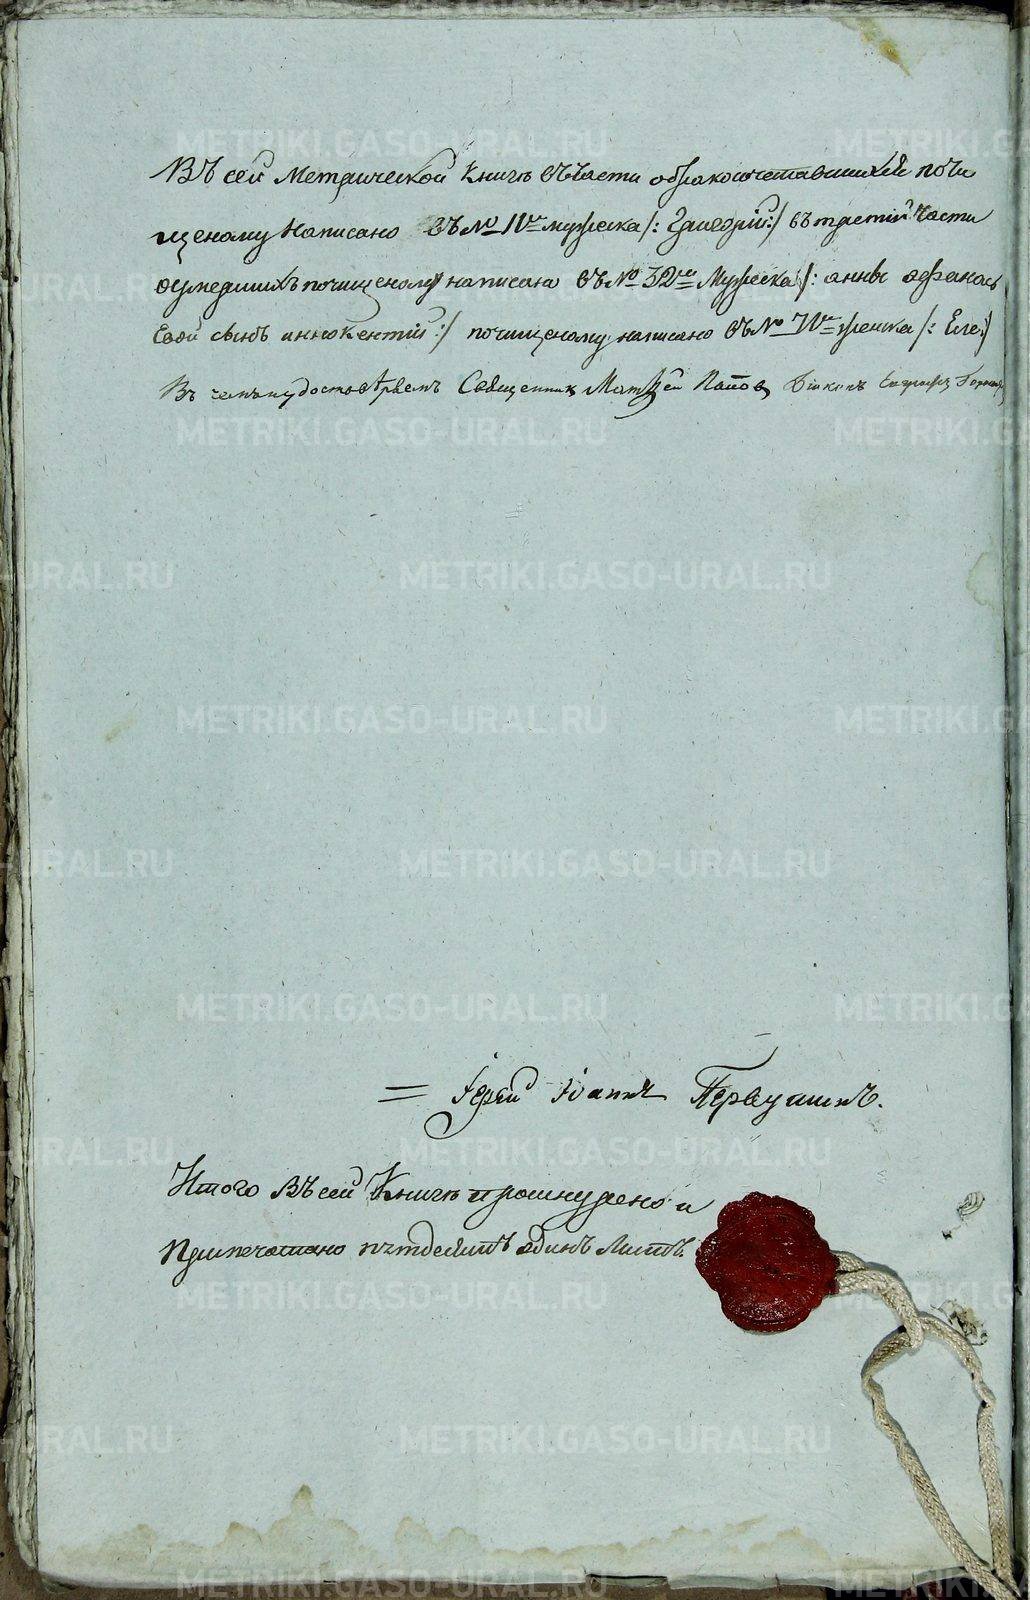 Въ сей Метрической Книгѣ въ части о бракосочетавшихся по чи
щеному Написано въ № 11мъ мужеска /: Григорій :/ въ третій части
о умершихъ по чищеному написано въ № 32мъ Мужеска /: анны афанась
евой сынъ иннокентий :/ по чищеному написано въ № 71мъ женска /:
Въ чемъ и удостовѣряемъ Священник Матвей Попов Дiаконъ
= Іерей Іоаннъ Первушинъ.
Итого Въ сей Книгѣ прошнурено и
Припечатано пятдесятъ одинъ Листъ.
METRIKI.GASO-URAL.RU